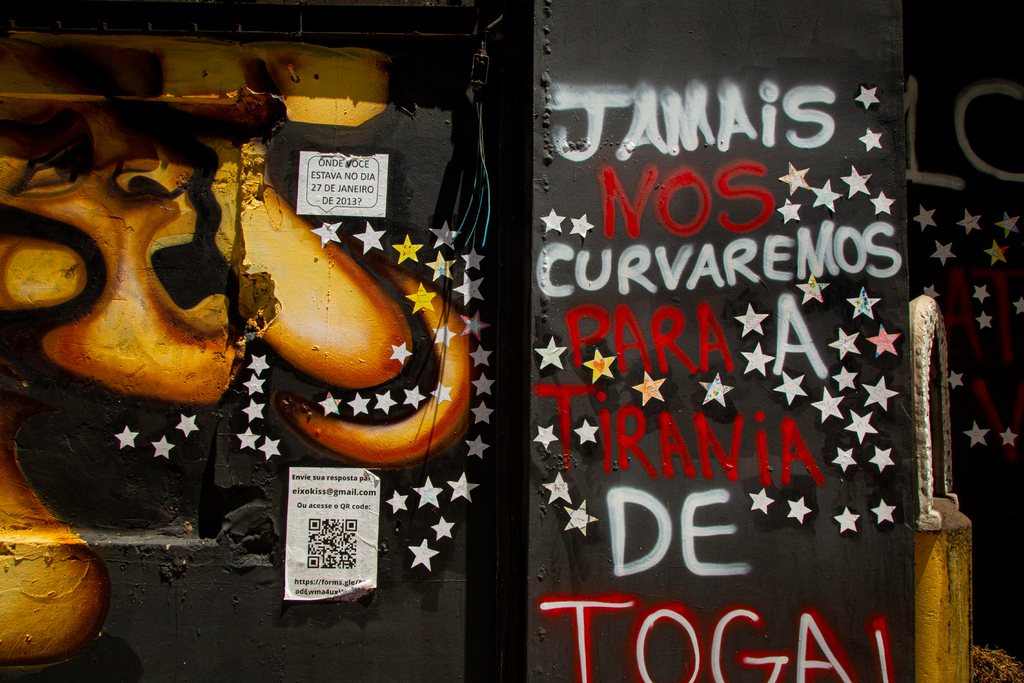 ONDE VOCÊ
ESTAVA NO DIA
27 DE JANEIRO
DE 2013?
Envie sua resposta par
eixokiss@gmail.com
Ou acesse o QR code:
https://forms.gle/
JAMAiS
NOS
CURVAREMOS
PARA A
TIRANiA
DE
TOGA!